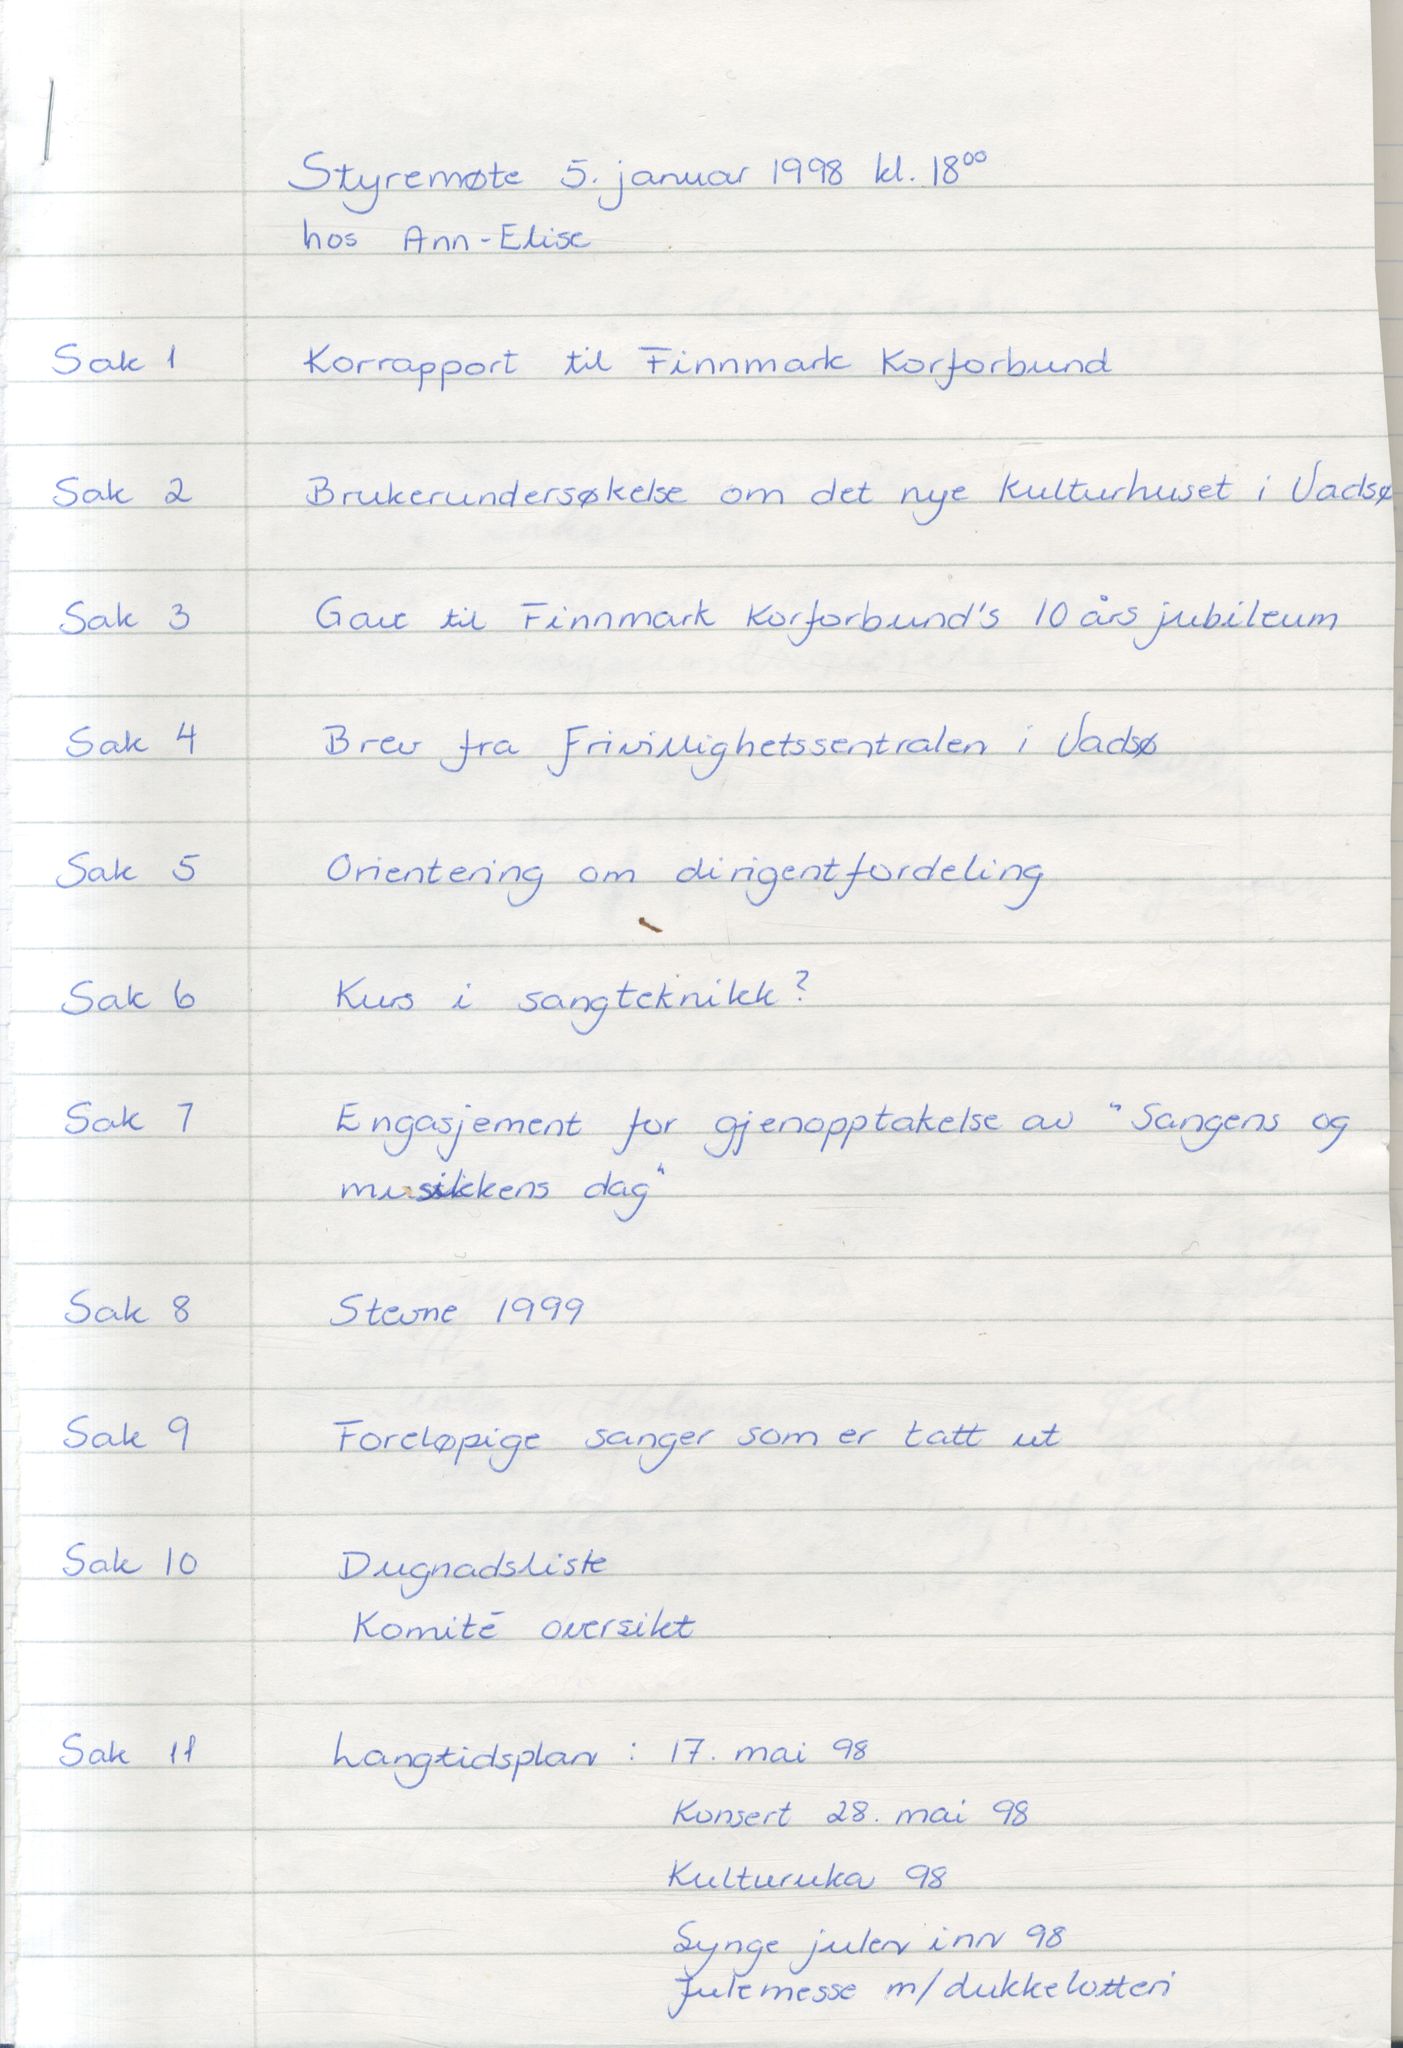 Styremøte 5. januar 1998 kl. 18⁰⁰
hos Ann-Elise
Sak 1 Korrapport til Finnmark Korforbund
Sak 2 Brukerundersøkelse om det nye kulturhuset i Vadsø
Sak 3 Gave til Finnmark Korforbund's 10 års jubileum
Sak 4 Brev fra Frivillighetssentralen i Vadsø
Sak 5 Orientering om dirigentfordeling
Sak 6 Kurs i sangteknikk?
Sak 7 Engasjement for gjenopptakelse av "Sangens og
musikkens dag"
Sak 8 Stevne 1999
Sak 9 Foreløpige sanger som er tatt ut
Sak 10 Dugnadsliste
Komité oversikt
Sak 11 Langtidsplan : 17. mai 98
Konsert 28. mai 98
Kulturuka 98
Synge julen inn 98
Julemesse m/dukkelotteri